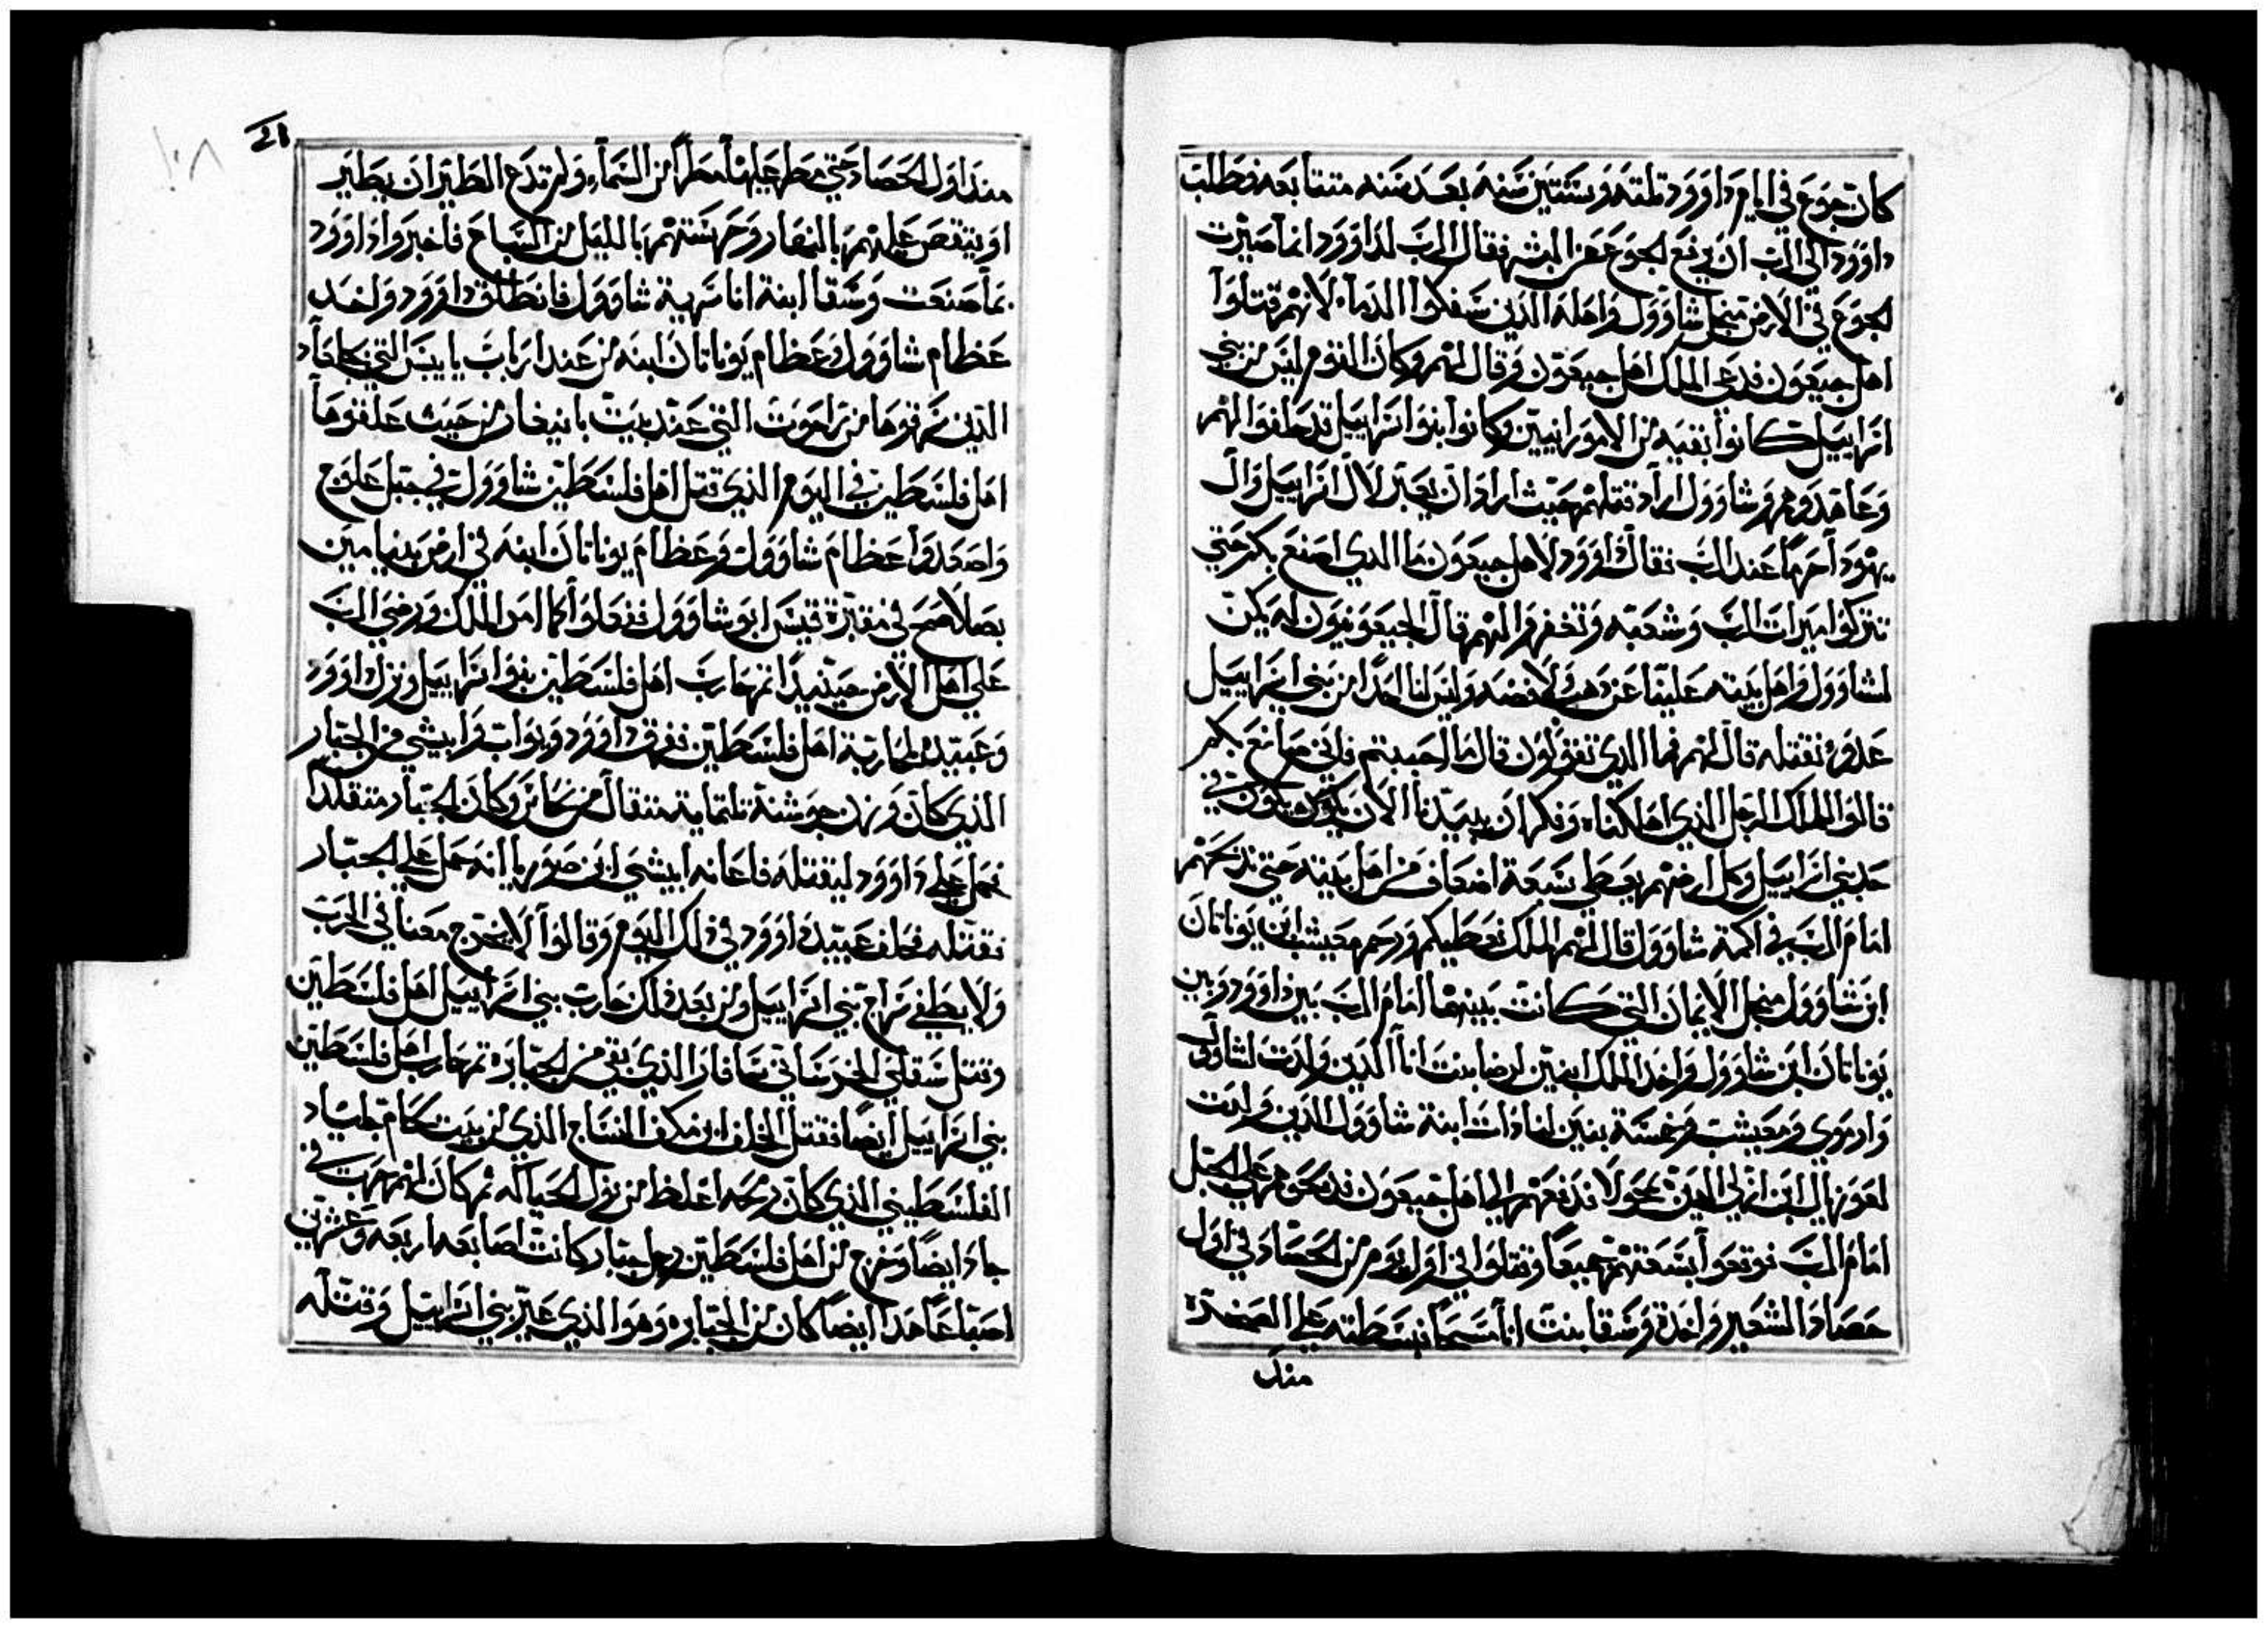 كان جوع في ايام داوود تلته وسنتين سنه بعد سنه متتابعه فطلب
داوود الي الرب ان يرفع الجوع عن البشر فقال الرب لداوود انما صيرت
الجوع في الارض منجل شاوول واهله الذين سفكوا الدماء لانهم قتلوا
اهل جبعون فدعي الملك اهل جبعون وقال لهم وكان القوم ليس من بني
اسراييل كانوا بقيه من الامورانيين وكانوا بنوا اسراييل قد حلفوا لهم
وعاهدوهم وشاوول اراد قتلهم حيث اراد ان يعبر لال اسراييل وال
يهودا حرما عند الرب فقال داوود لاهل جبعون ما الذي اصنع بكم حتي
تتركوا ميرات الرب وشعبه وتغفروا لهم قال الجبعونيون له يكن
لشاوول واهل بيته علينا عن دهب ولا فضه وليس لنا احدا من بني اسراييل
عدوه نقتله قال لهم فما الذي تقولون قال ما احببتم فاني صانع بكم
قالوا للملك الرجل الذي اهلكناه وفكر ان يبيدنا الان يكون في
حد بني اسراييل وكل ارضهم يعطي سبعة اضعاف من اهل بيته حتي ندبحهم
امام الرب في اكمة شاوول قال لهم الملك نعطيكم ورحم معيشب ابن يوناتان
ابن شاوول منجل الايمان التي كانت بينهما امام الرب بين داوود وبين
يوناتان ابن شاوول واخد الملك ابنين ارضا بنت انا الدين ولدت لشاوول
وارموي ومعيشب وخمسة بنين لناداب ابنة شاوول الذين ولدت
لعوزيال ابن ازلي الدين بحولا فدفعهم الي اهل جبعون فدبحوهم علي الجبل
امام الرب فوقعوا سبعتهم جميعا وقتلوا في اول يوم من الحصاد في اول
حصاد الشعير واخدة وسقا بنت انا مسحا فبسطته علي الصخرة
مند
21
١٠٨
مند اول الحصاد حتي مطر عليها مطرا من السماء ولم تدع الطير ان يطير
او ينتقص عليهم بالنهار وحرستهم بالليل من السباع فاخبروا داوود
بما صنعت وسقا ابنة انا سرية شاوول فانطلق داوود واخد
عظام شاوول وعظام يوناتان ابنه من عند ارباب يابيس التي بجلعاد
الذين سرقوها من راحوت التي عند بيت بانيغار من حيث علقوها
اهل فلسطين في اليوم الذي قتل اهل فلسطين شاوول في جبل علوج
واصعدوا عظام شاوول وعظام يوناتان ابنه في ارض بنيامين
بصلاصح في مقبرة قيس ابو شاوول ففعلوا كما امر الملك ورضي الرب
علي اهل الارض حينيدا تم حارب اهل فلسطين بنوا اسراييل ونزل داوود
وعبيده لمحاربة اهل فلسطين ففرق داوود ويواب وابيشي من الجبار
الذي كان وزن جوشنة تلتماية متقال من نحاس وكان الجبار متقلدا
فحمل علي داوود ليقتله فاعانه ابيشي ابن صوريا انه حمل علي الجبار
فقتله فحلف عبيد داوود في دلك اليوم وقالوا لا يخرج معنا في الحرب
ولا يطفي سراج بني اسراييل ومن بعد دلك حارب بني اسراييل اهل فلسطين
وقتل سقلي الخرساني سافار الذي بقي من الجبابره تم حارب اهل فلسطين
بني اسراييل ايضا فقتل الخلف ابن مكف النساج الذي من بيت كام جلياد
الفلسطيني الذي كان رمحه اغلظ من نول الحياكه تم كان لهم حرب في
جاد ايضا وخرج من اهل فلسطين رجل جبار كانت اصابعه اربعه وعشرين
اصبعا هدا ايضا كان من الجبابره وهو الذي عير بني اسراييل وقتله